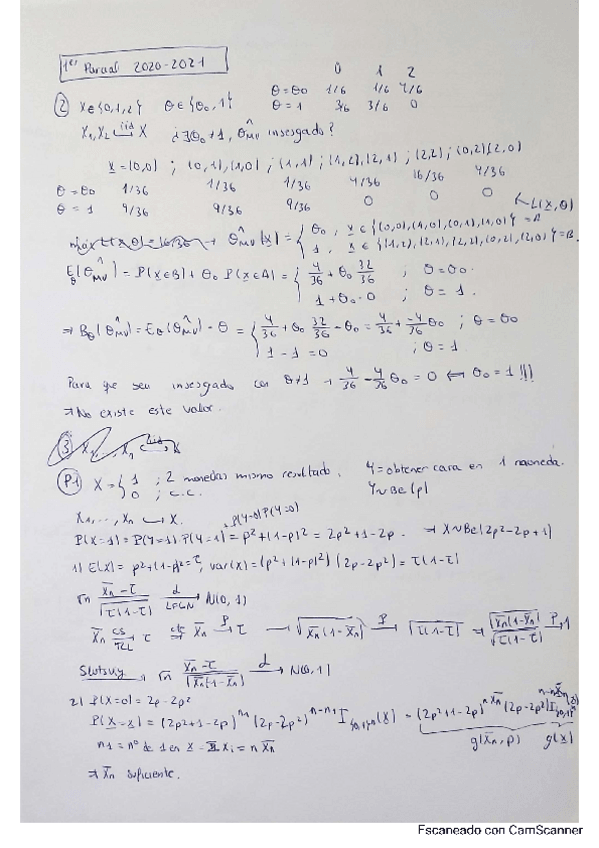 1er Parcial 2020-2021
0 1 2
② X∈{0,1,2} θ∈{θ0,1} θ=θ0 1/6 1/6 4/6
θ=1 3/6 3/6 0
X1,X2 iid X ¿∃θ0≠1, θ̂MV insesgado?
x=(0,0) ; (0,1),(1,0) ; (1,1) ; (1,2),(2,1) ; (2,2) ; (0,2)(2,0)
θ=θ0 1/36 1/36 1/36 4/36 16/36 4/36
θ=1 9/36 9/36 9/36 0 0 0 L(x,θ)
θ̂MV(x) = { θ0, x∈{(0,0),(1,0),(0,1),(1,0)} = A
1, x∈{(1,2),(2,1),(2,2),(0,2),(2,0)} = B.
Eθ(θ̂MV) = P(x∈B) + θ0 P(x∈A) = { 4/36 + θ0 32/36 ; θ=θ0.
1+θ0·0 ; θ=1.
⇒ Bθ(θ̂MV) = Eθ(θ̂MV) - θ = { 4/36 + θ0 32/36 - θ0 = 4/36 + -4/36 θ0 ; θ=θ0
1-1=0 ; θ=1
Para que sea insesgado con θ≠1 → 4/36 - 4/36 θ0 = 0 ⟺ θ0=1 !!!
⇒ No existe este valor.
③
P.1 X={ 1 ; 2 monedas mismo resultado. Y=obtener cara en 1 moneda.
0 ; c.c. Y~Be(p)
X1,...,Xn → X. P(Y=0)P(Y=0)
P(X=1) = P(Y=1)·P(Y=1) = p²+(1-p)² = 2p²+1-2p. ⇒ X~Be(2p²-2p+1)
1) E(X) = p²+(1-p)² = τ, var(X) = (p²+(1-p)²)(2p-2p²) = τ(1-τ)
√n (X̄n-τ)/√(τ(1-τ)) d→ LFGN N(0,1)
X̄n cs→ TCL τ cs⇒ X̄n P→ τ → √(X̄n(1-X̄n)) P→ √(τ(1-τ)) ⇒ √(X̄n(1-X̄n))/√(τ(1-τ)) P→ 1
Slutsky → √n (X̄n-τ)/√(X̄n(1-X̄n)) d→ N(0,1)
2) P(X=0) = 2p-2p²
P(X=x) = (2p²+1-2p)^n1 (2p-2p²)^n-n1 I{0,1}n(x) = (2p²+1-2p)^nX̄n (2p-2p²)^n-nX̄n I{0,1}n(x)
n1 = nº de 1 en x - Σ Xi = n X̄n g(X̄n,p) g(x)
⇒ X̄n suficiente.
Escaneado con CamScanner